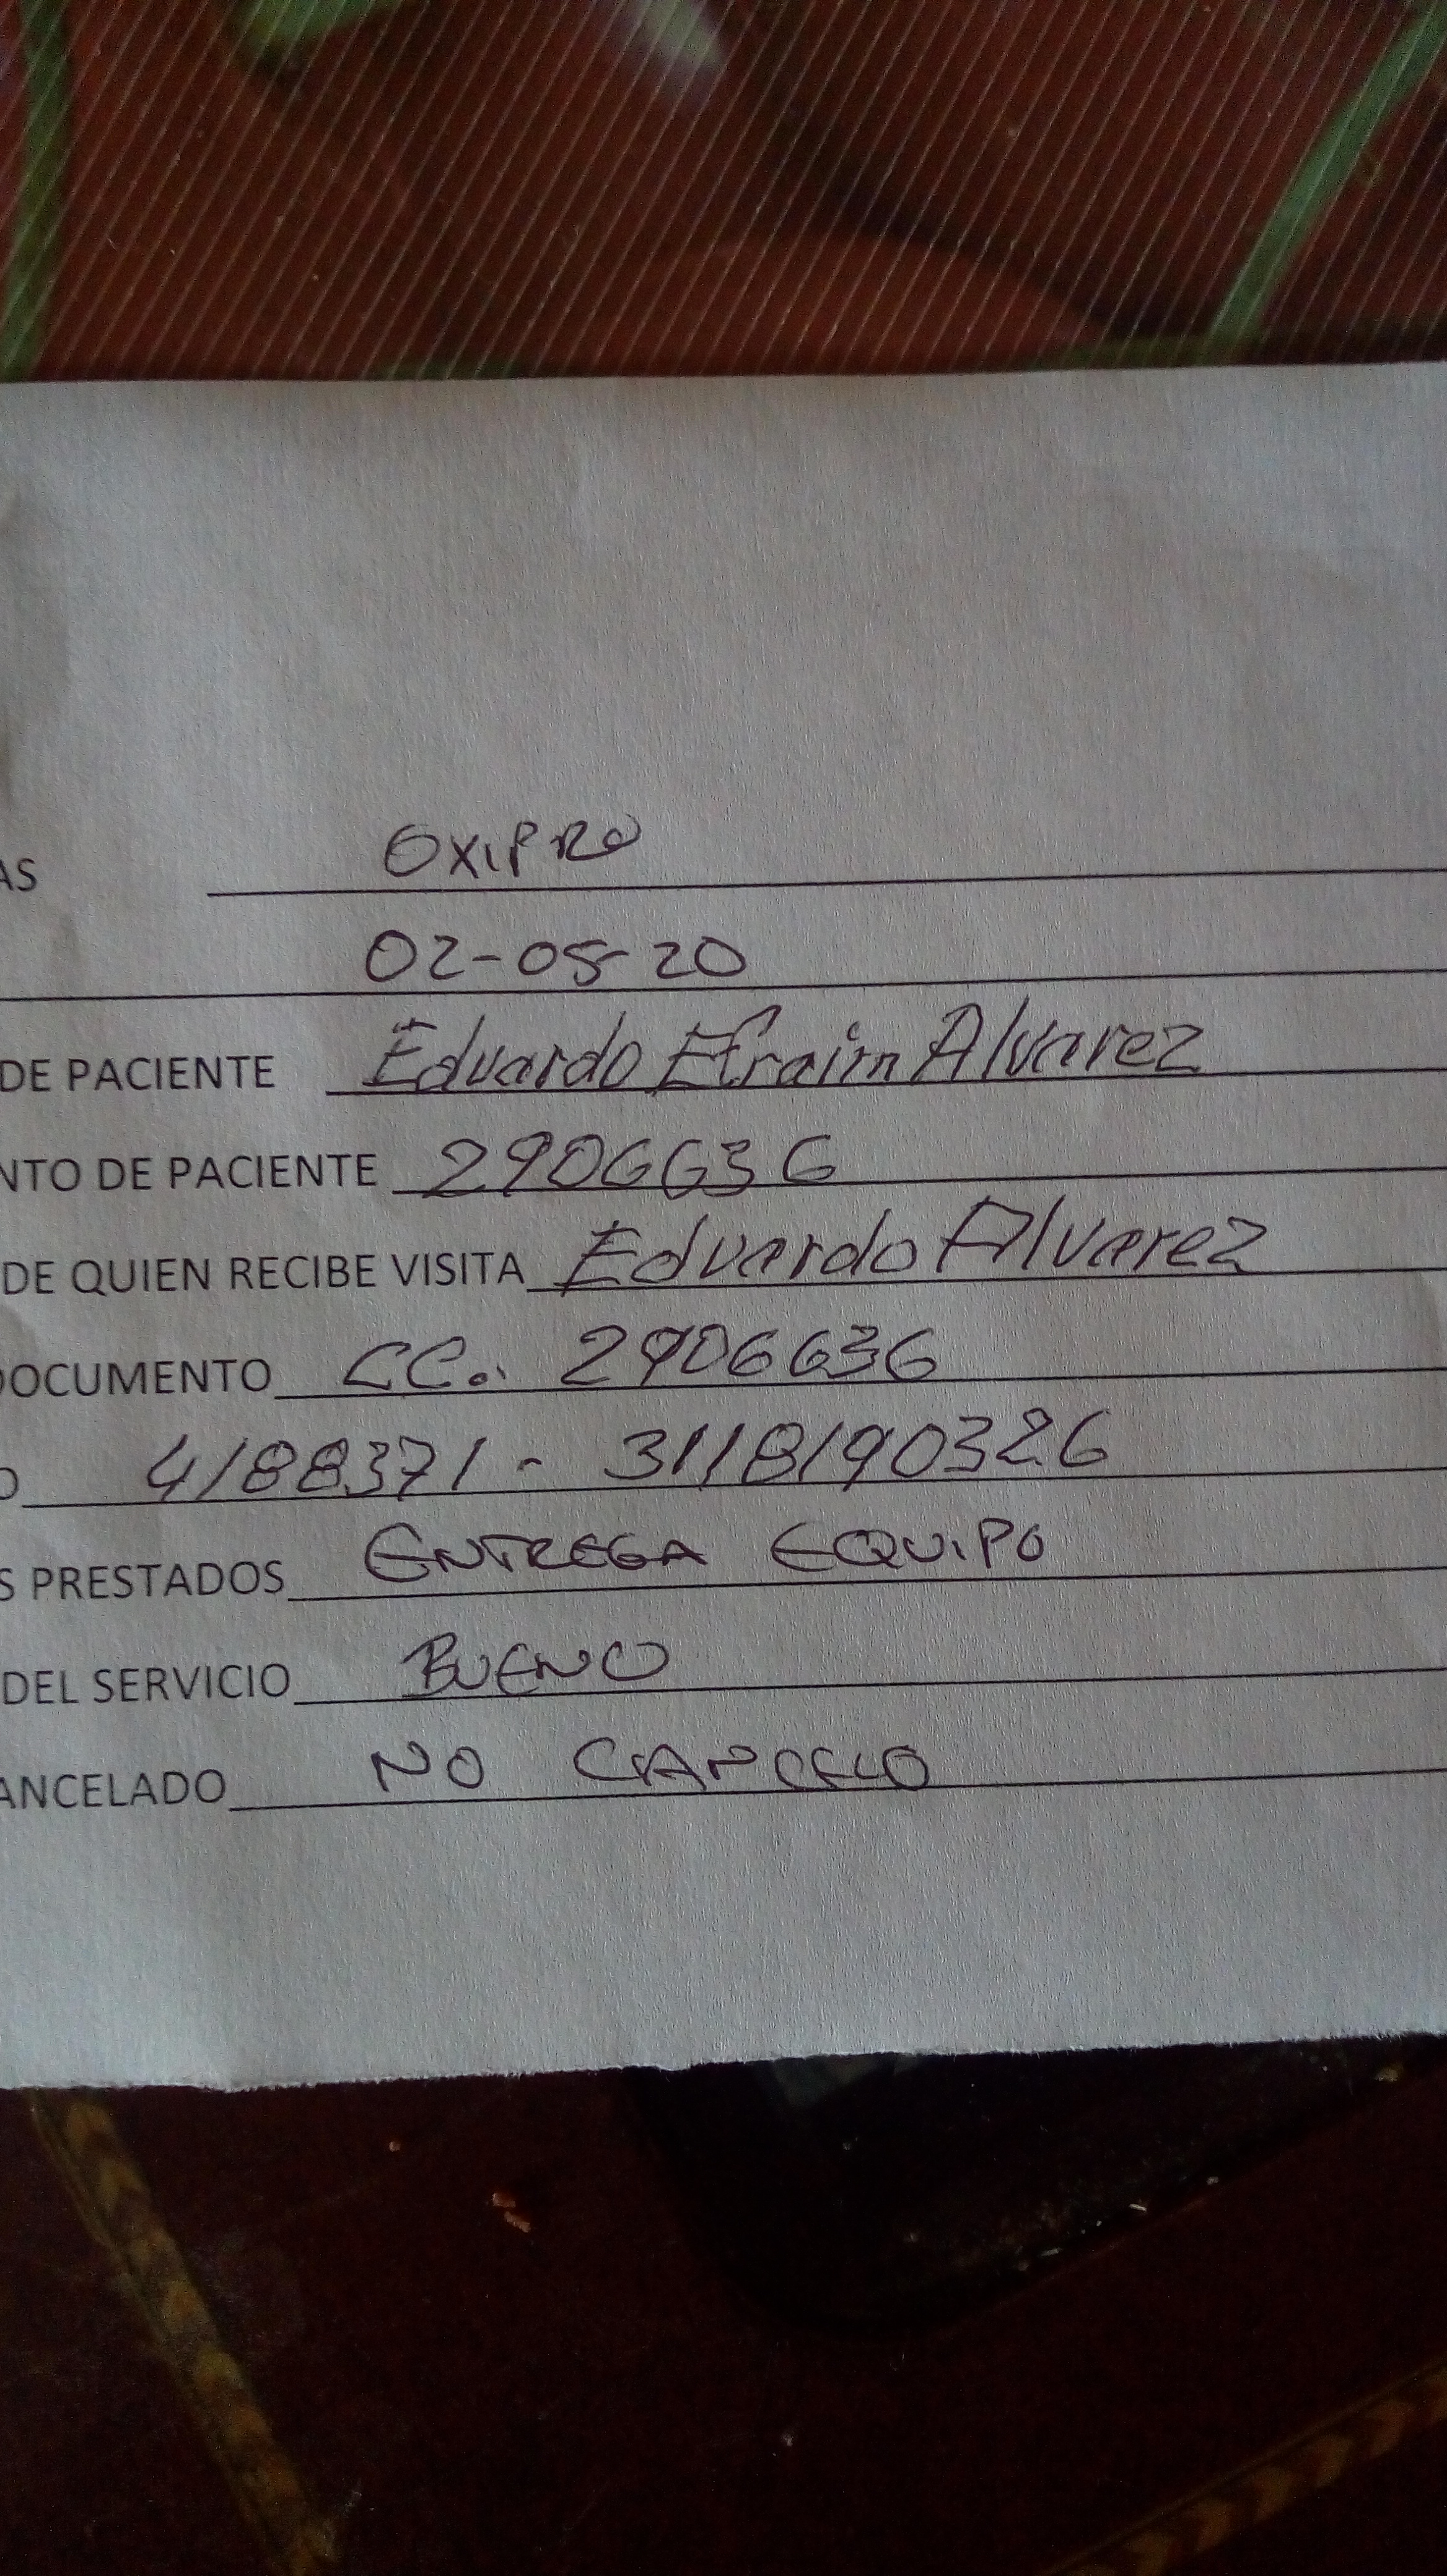 AS OXIPRO
02-05-20
DE PACIENTE Eduardo Efraim Alvarez
NTO DE PACIENTE 2906636
DE QUIEN RECIBE VISITA Eduardo Alvarez
DOCUMENTO CC. 2906636
O 4188371 - 3118190326
S PRESTADOS ENTREGA EQUIPO
DEL SERVICIO BUENO
ANCELADO NO CANCELO